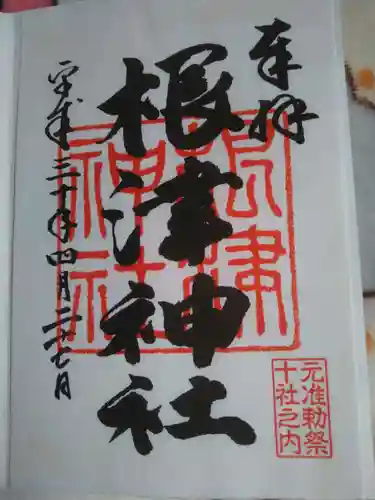 奉拝
根津神社
平成三十年四月二十七日
根津
神社
元准勅祭
十社之内